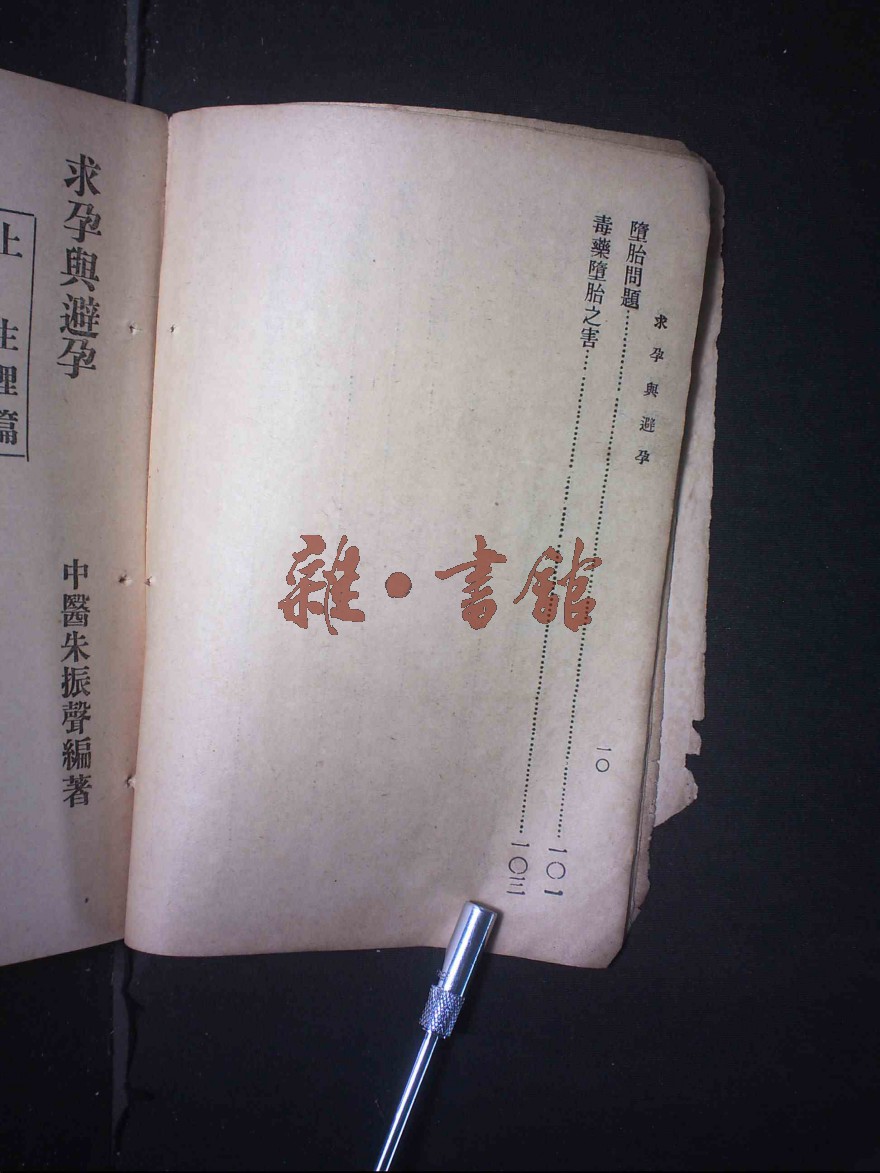 求孕與避孕
墮胎問題⋯⋯⋯⋯⋯⋯⋯⋯一〇一
毒藥墮胎之害⋯⋯⋯⋯⋯⋯⋯⋯一〇三
一〇
雜·書館
求孕與避孕
中醫朱振聲編著
上 生理篇